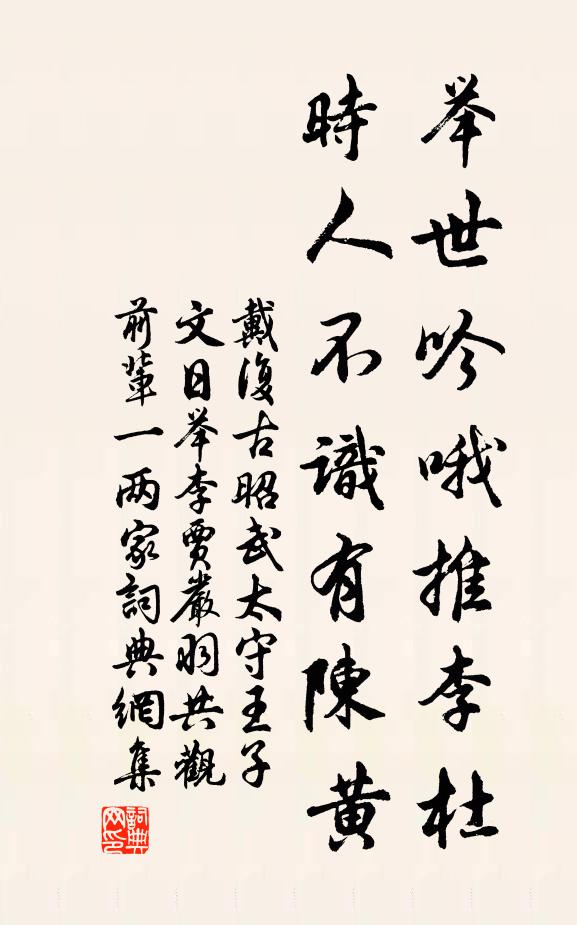 举世吟哦推李杜
時人不識有陳黄
戴復古昭武太守王子
文日举李賈嚴羽共觀
前輩一两家詞典網集
詞典网印